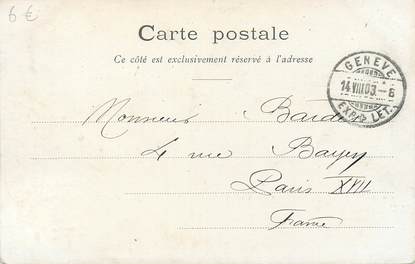 6 €
Carte postale
Ce côté est exclusivement réservé à l'adresse
GENEVE
14 VIII 03.-6
EXP. LET.
Monsieur
4 rue Bayen
Paris XVII
France